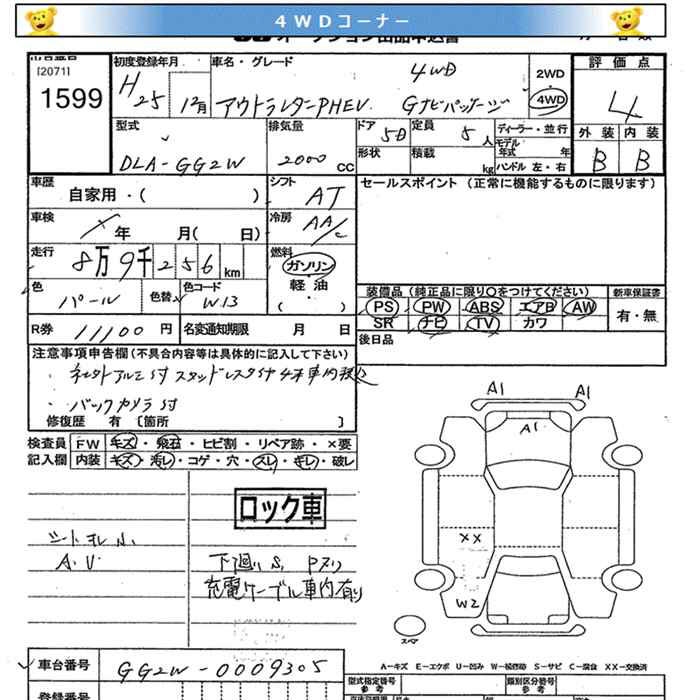 4WDコーナー
オークション出品申込書
出品番号 初度登録年月 車名・グレード 2WD 評価点
[2071]
1599 H25 12月 アウトランダーPHEV Gナビパッケージ 4WD 4WD 4
型式 排気量 ドア 定員 ディーラー・並行 外装 内装
DLA-GG2W 2000 CC 5D 5人 モデル年式 年 B B
形状 積載 kg ハンドル 左・右
車歴 自家用・( ) シフト AT セールスポイント (正常に機能するものに限ります)
車検 年 月( 日) 冷房 AA/C
走行 8万9千256km 燃料 ガソリン
軽油
( )
色 パール 色替 色コード W13
装備品(純正品に限り○をつけてください) 新車保証書
PS PW ABS エアB AW 有・無
SR ナビ TV カワ
R券 11100円 名変通知期限 月 日
後日品
注意事項申告欄(不具合内容等は具体的に記入して下さい)
バックカメラ付
修復歴 有 〔箇所 〕
検査員記入欄 FW キズ・飛石・ヒビ割・リペア跡・×要
内装 キズ・汚レ・コゲ・穴・スレ・キレ・破レ
A1 A1
A1
ロック車
シートヨレ小
A.U
下廻りS Pヌリ
充電ケーブル車内有り
XX
W2
スペア
A－キズ E－エクボ U－凹み W－補修跡 S－サビ C－腐食 XX－交換済
車台番号 GG2W-0009305
型式指定番号 類別区分番号
参考 参考
登録番号